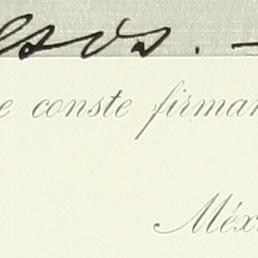 esos. -
e conste firman
Méx